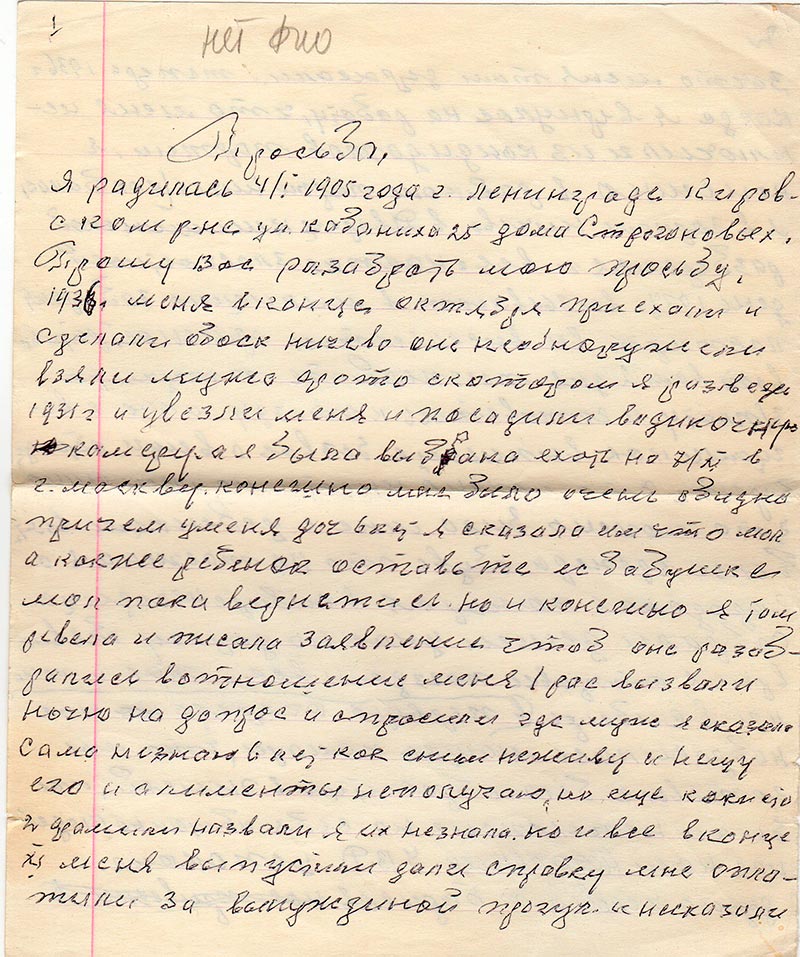 1
нет фио
Просьба,
Я радилась 4/I 1905 года г. Ленинграде Киров-
ском р-не ул. кабаниха 25 дома Строгоновых.
Прошу Вас разабрать мою просьбу,
1936г меня в конце октября приехали и
сделали обоск ничево оне необнаружели
взяли мужа фото скоторым я разведен
1931г и увезли меня и посадили водиночную
камеру а я была выбрана ехать на 7/XI в
г. москву. конечно мне было очень обидно
причем уменя доч 8 лет я сказала им что мол
а какже ребенок оставьте ее бабушке
мол пока вернетись. но и конечно я там
ревела и писала заявление чтоб оне разаб-
рались вотношение меня 1 рас вызвали
ночю на допрос и спросили где муж я сказала
сама незнаю 8 лет как сним неживу и нещу
его и алименты неполучаю, но еще какието
2 фамили назвали я их незнала. но и все вконце
XI меня выпустили дали справку мне опла-
тили за вынуждиной прогул. и несказали